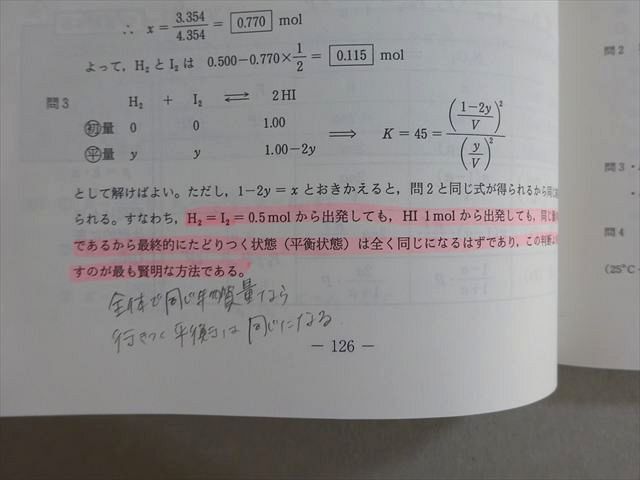 ∴ x = 3.354/4.354 = 0.770 mol
よって，H₂とI₂は 0.500−0.770×1/2 = 0.115 mol
問3 H₂ + I₂ ⇄ 2HI
初量 0 0 1.00
平量 y y 1.00−2y ⟹ K = 45 = ((1−2y)/V)² / (y/V)²
として解けばよい。ただし，1−2y = x とおきかえると，問2と同じ式が得られるから同じ
られる。すなわち，H₂ = I₂ = 0.5 mol から出発しても，HI 1 mol から出発しても，同じ
であるから最終的にたどりつく状態（平衡状態）は全く同じになるはずであり，この判断
すのが最も賢明な方法である。
全体で同じ物質量なら
行きつく平衡は同じになる
− 126 −
問2
問3・
問4
(25°C